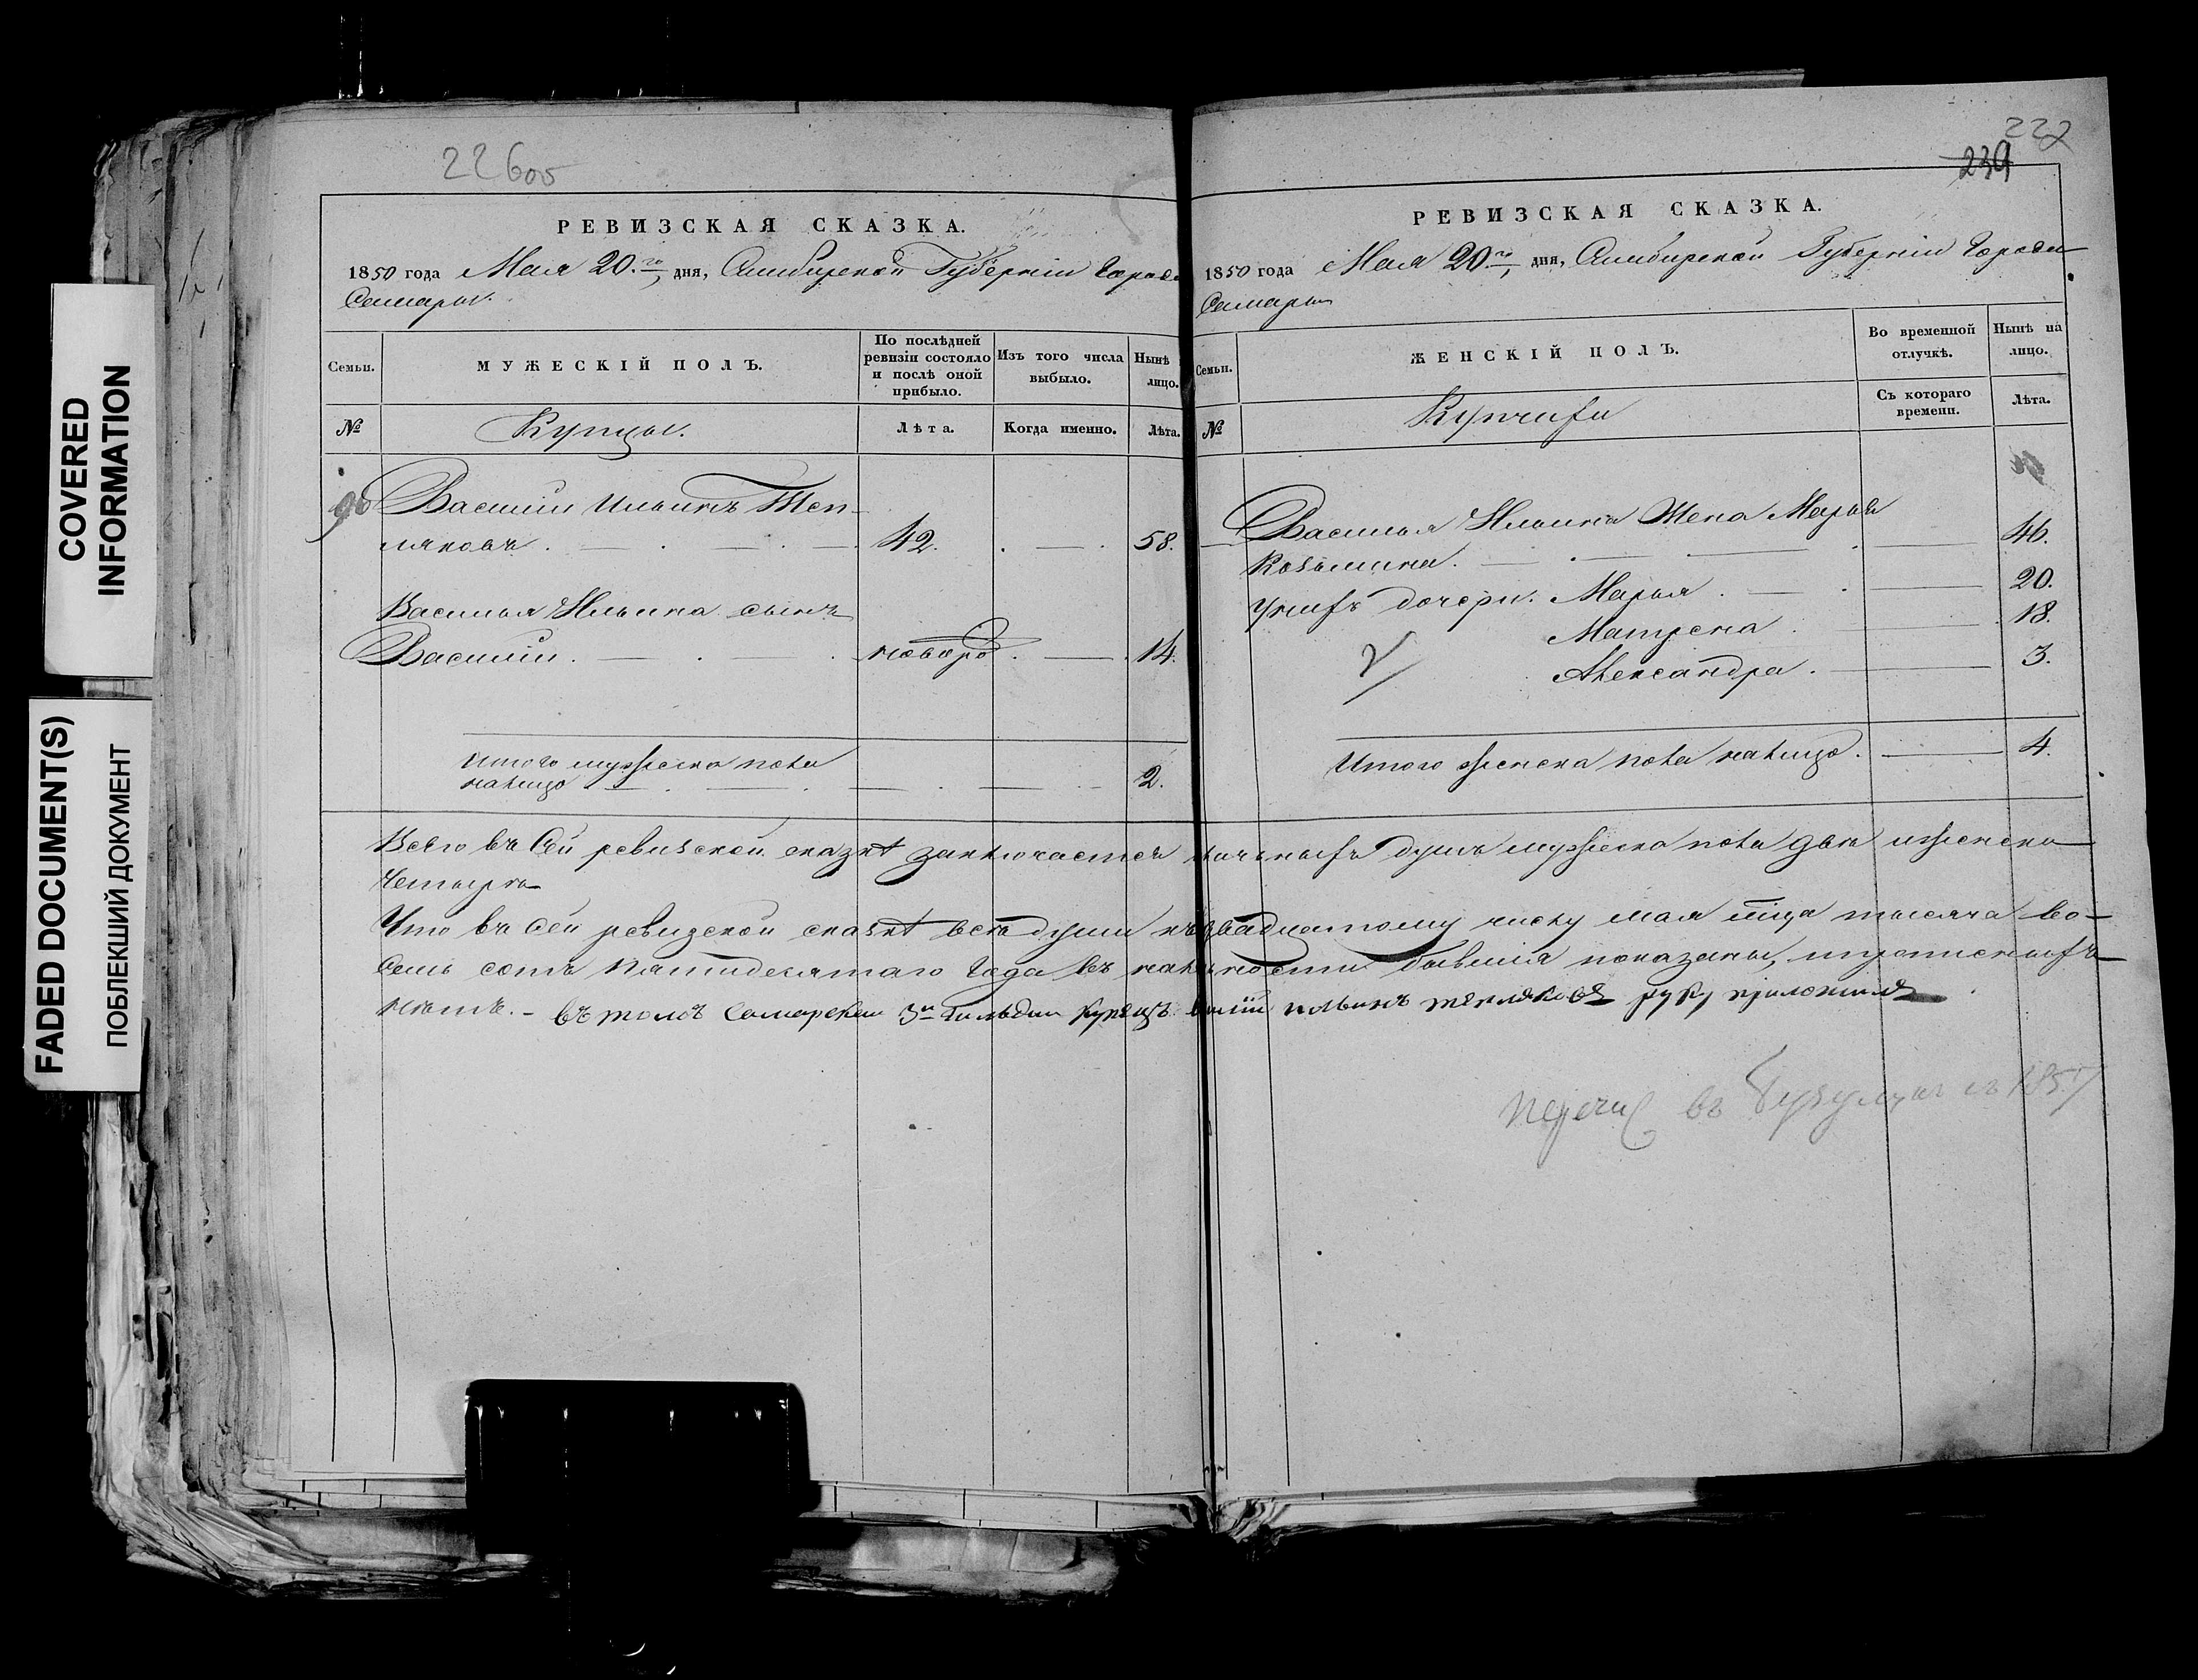 COVERED
INFORMATION
FADED DOCUMENT(S)
ПОБЛЕКШИЙ ДОКУМЕНТ
22 600
РЕВИЗСКАЯ СКАЗКА.
1850 года Мая 20.го дня, Симбирской Губерніи Города
Самары.
Семьи.
МУЖЕСКІЙ ПОЛЪ.
По послѣдней
ревизіи состояло
и послѣ оной
прибыло.
Изъ того числа
выбыло.
Нынѣ
лицо.
№
Купцы.
Лѣта.
Когда именно.
Лѣта.
90 Василій Ильинъ Теп-
ляковъ. 42. 58.
Василья Ильина сынъ
Василій. новород 14.
Итого мужеска пола
налицо 2.
222
239
РЕВИЗСКАЯ СКАЗКА.
1850 года Мая 20.го дня, Симбирской Губерніи Города
Самары
Семьи.
ЖЕНСКІЙ ПОЛЪ.
Во временной
отлучкѣ.
Нынѣ на
лицо.
№
Купчихи
Съ котораго
времени.
Лѣта.
Василья Ильина Жена Марья
Козьмина. 46.
У нихъ дочери: Марья. 20.
Матрена. 18.
Александра. 3.
Итого женска пола налицо. 4.
Всего въ Сей ревизской сказкѣ заключается наличныхъ душъ мужеска пола двѣ и женска
Четыре
Что въ Сей ревизской сказкѣ всѣ души къ двадцатому числу мая мца тысяча во-
семь сотъ Пятидесятаго Года въ наличности бывшія показаны, и прописныхъ
нѣтъ. - въ томъ Самарской 3й Гильдіи Купецъ василій ильинъ тепляковъ руку приложилъ
Перечис въ Бузулукъ съ 1857